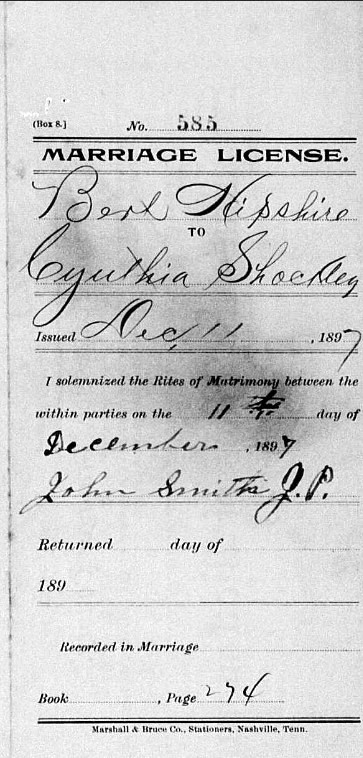 (Box 8.) No. 585
MARRIAGE LICENSE.
Bert Hipshire
TO
Cynthia Shockley
Issued Dec, 11 , 1897
I solemnized the Rites of Matrimony between the
within parties on the 11 day of
December , 1897
John Smith J.P.
Returned day of
189
Recorded in Marriage
Book , Page 274
Marshall & Bruce Co., Stationers, Nashville, Tenn.